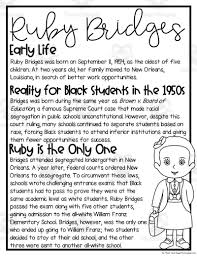 Ruby Bridges
Early Life
Ruby Bridges was born on September 8, 1954, as the oldest of five
children. At two years old, her family moved to New Orleans,
Louisiana, in search of better work opportunities.
Reality for Black Students in the 1950s
Bridges was born during the same year as Brown v. Board of
Education, a famous Supreme Court case that made and racial
segregation in public schools unconstitutional. However, despite this
court ruling, many schools continued to separate students based on
race, forcing Black students to attend inferior institutions and giving
them fewer opportunities for success.
Ruby is the Only One
Bridges attended segregated kindergarten in New
Orleans. A year later, federal courts ordered New
Orleans to end racial segregation. To slow change,
schools gave challenging entrance exams that Black
students had to pass to prove they were at the
same academic level as white students. Ruby
Bridges and five other students passed the exams,
gaining admission to the all-white William Franz
Elementary School. Before the school year, two
students decided to stay at their old school, and the other
three were sent to another all-white school.